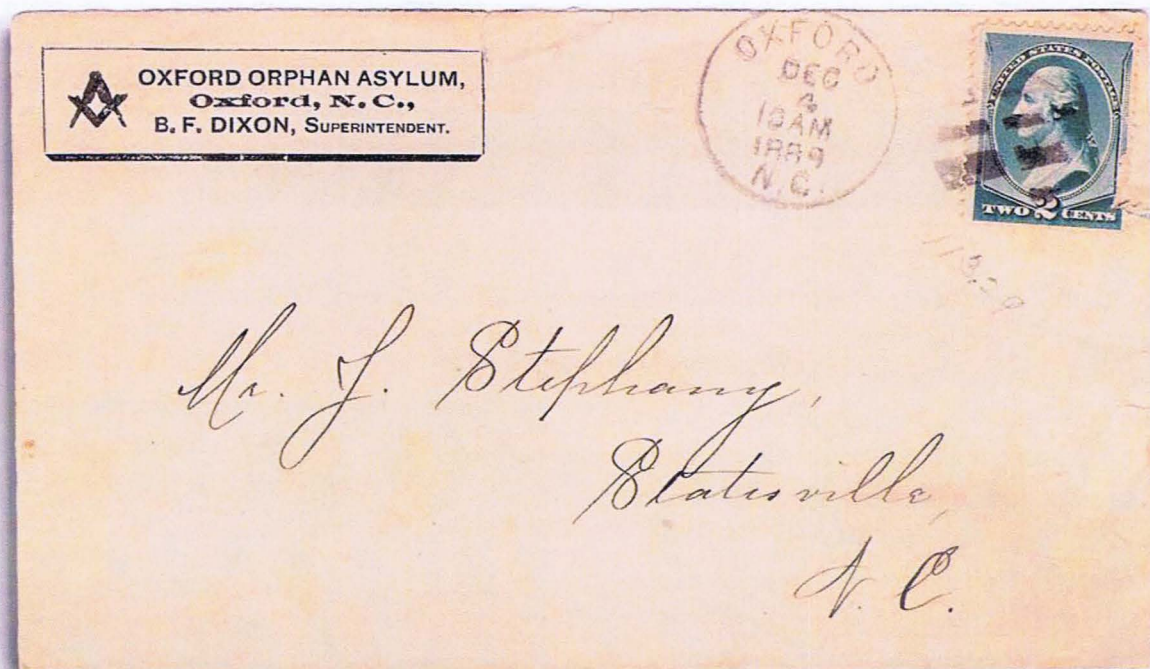 OXFORD ORPHAN ASYLUM,
Oxford, N. C.,
B. F. DIXON, SUPERINTENDENT.
OXFORD
DEC
4
10AM
1889
N.C.
UNITED STATES POSTAGE
TWO 2 CENTS
Mr. J. Stephany,
Statesville,
N. C.